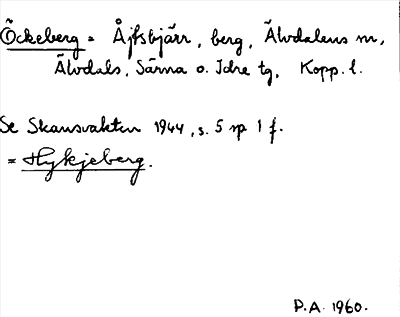 Öckeberg = Åjfsbjärr, berg, Älvdalens m,
Älvdals, Särna o. Idre tg, Kopp. l.
Se Skansvakten 1944, s. 5 sp 1 f.
= Hykjeberg.
P.A. 1960.